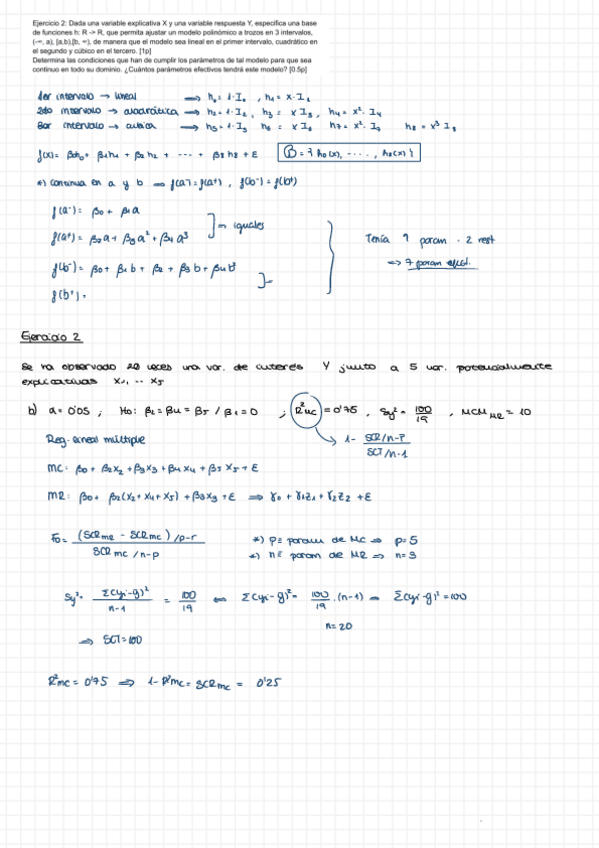 Ejercicio 2: Dada una variable explicativa X y una variable respuesta Y, especifica una base
de funciones h: R -> R, que permita ajustar un modelo polinómico a trozos en 3 intervalos,
(-∞, a), [a,b),[b, ∞), de manera que el modelo sea lineal en el primer intervalo, cuadrático en
el segundo y cúbico en el tercero. [1p]
Determina las condiciones que han de cumplir los parámetros de tal modelo para que sea
continuo en todo su dominio. ¿Cuántos parámetros efectivos tendrá este modelo? [0.5p]
1er intervalo → lineal ⟹ h₀ = 1·I₁ , h₁ = x·I₁
2do intervalo → cuadrática ⟹ h₂ = 1·I₂ , h₃ = x I₂ , h₄ = x²·I₂
3er intervalo → cubica ⟹ h₅ = 1·I₃ h₆ = x I₃ h₇ = x²·I₃ h₈ = x³ I₃
f(x) = β₀h₀ + β₁h₁ + β₂h₂ + ··· + β₈h₈ + ε B = { h₀(x), ····, h₈(x) }
*) continua en a y b ⟹ f(a⁻) = f(a⁺) , f(b⁻) = f(b⁺)
f(a⁻) = β₀ + β₁a
f(a⁺) = β₂a + β₃a² + β₄a³
iguales
Tenía 9 param - 2 rest
⟹ 7 param efect.
f(b⁻) = β₀ + β₁b + β₂ + β₃b + β₄b²
f(b⁺) =
Ejercicio 2
Se ha observado 20 veces una var. de interés Y junto a 5 var. potencialmente
explicativas X₁, ·· X₅
b) α = 0'05 ; H₀: β₂ = β₄ = β₅ / β₁ = 0 ; R²mc = 0'75 , Sy² = 100/19 , MCM MR = 10
Reg. lineal múltiple
1- SCR/n-p / SCT/n-1
MC: β₀ + β₂x₂ + β₃x₃ + β₄x₄ + β₅x₅ + ε
MR: β₀ + β₂(x₂ + x₄ + x₅) + β₃x₃ + ε ⟹ γ₀ + γ₁z₁ + γ₂z₂ + ε
F₀ = (SCR MR - SCR MC) /p-r / SCR MC /n-p
*) p ≡ param de MC ⟹ p = 5
*) n ≡ param de MR ⟹ n = 3
Sy² = Σ(yi - ȳ)² / n-1 = 100/19 ⟸ Σ(yi - ȳ)² = 100/19 · (n-1) ⟹ Σ(yi - ȳ)² = 100
n = 20
⟹ SCT = 100
R²mc = 0'75 ⟹ 1 - R²mc = SCR mc = 0'25